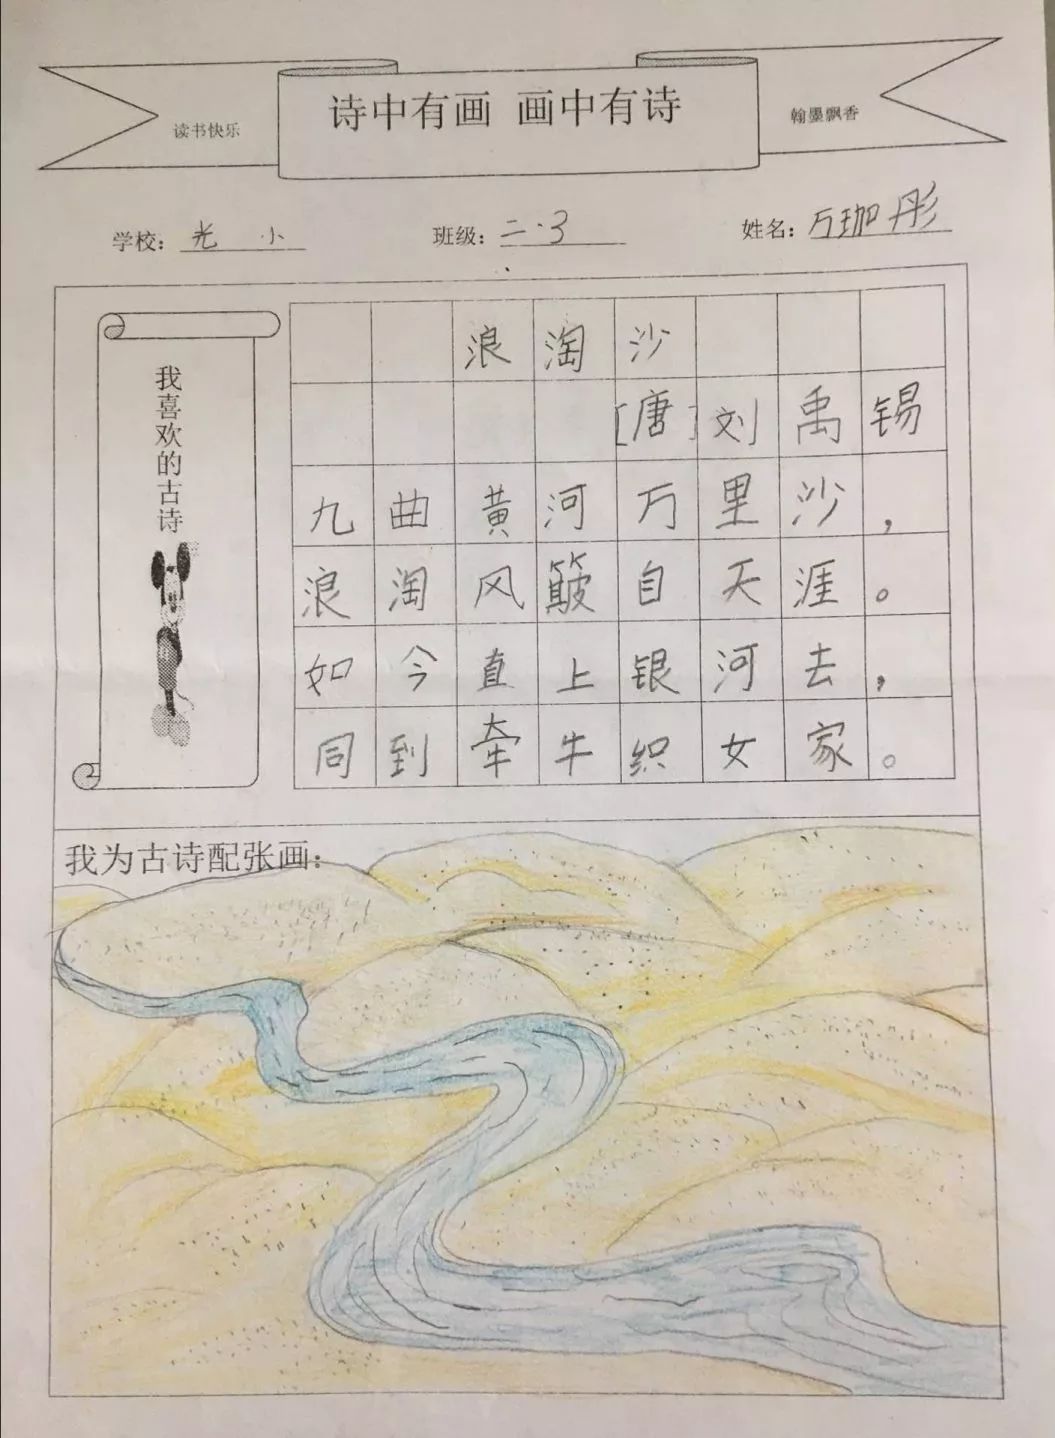 诗中有画 画中有诗
读书快乐
翰墨飘香
学校：光 小 班级：二·3 姓名：万珈彤
我喜欢的古诗
浪淘沙
[唐]刘禹锡
九曲黄河万里沙，
浪淘风簸自天涯。
如今直上银河去，
同到牵牛织女家。
我为古诗配张画：